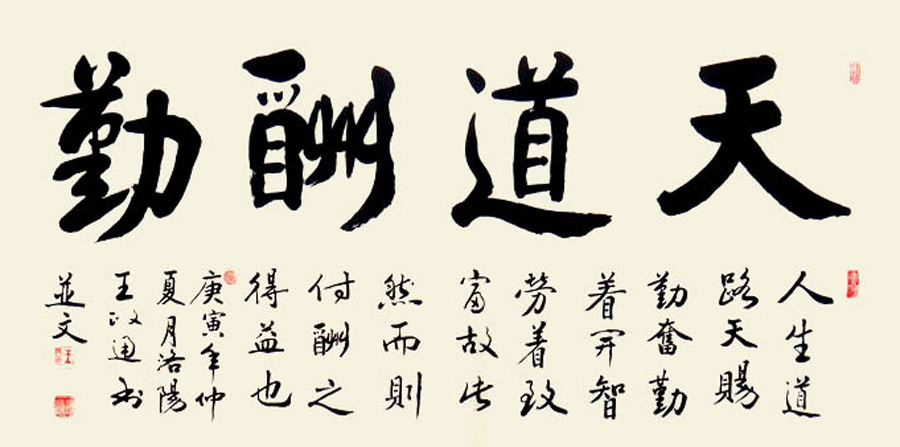 天道酬勤
人生道
路天賜
勤奮勤
着開智
勞着致
富故此
然而則
付酬之
得益也
庚寅年仲
夏月洛陽
王政通書
並文